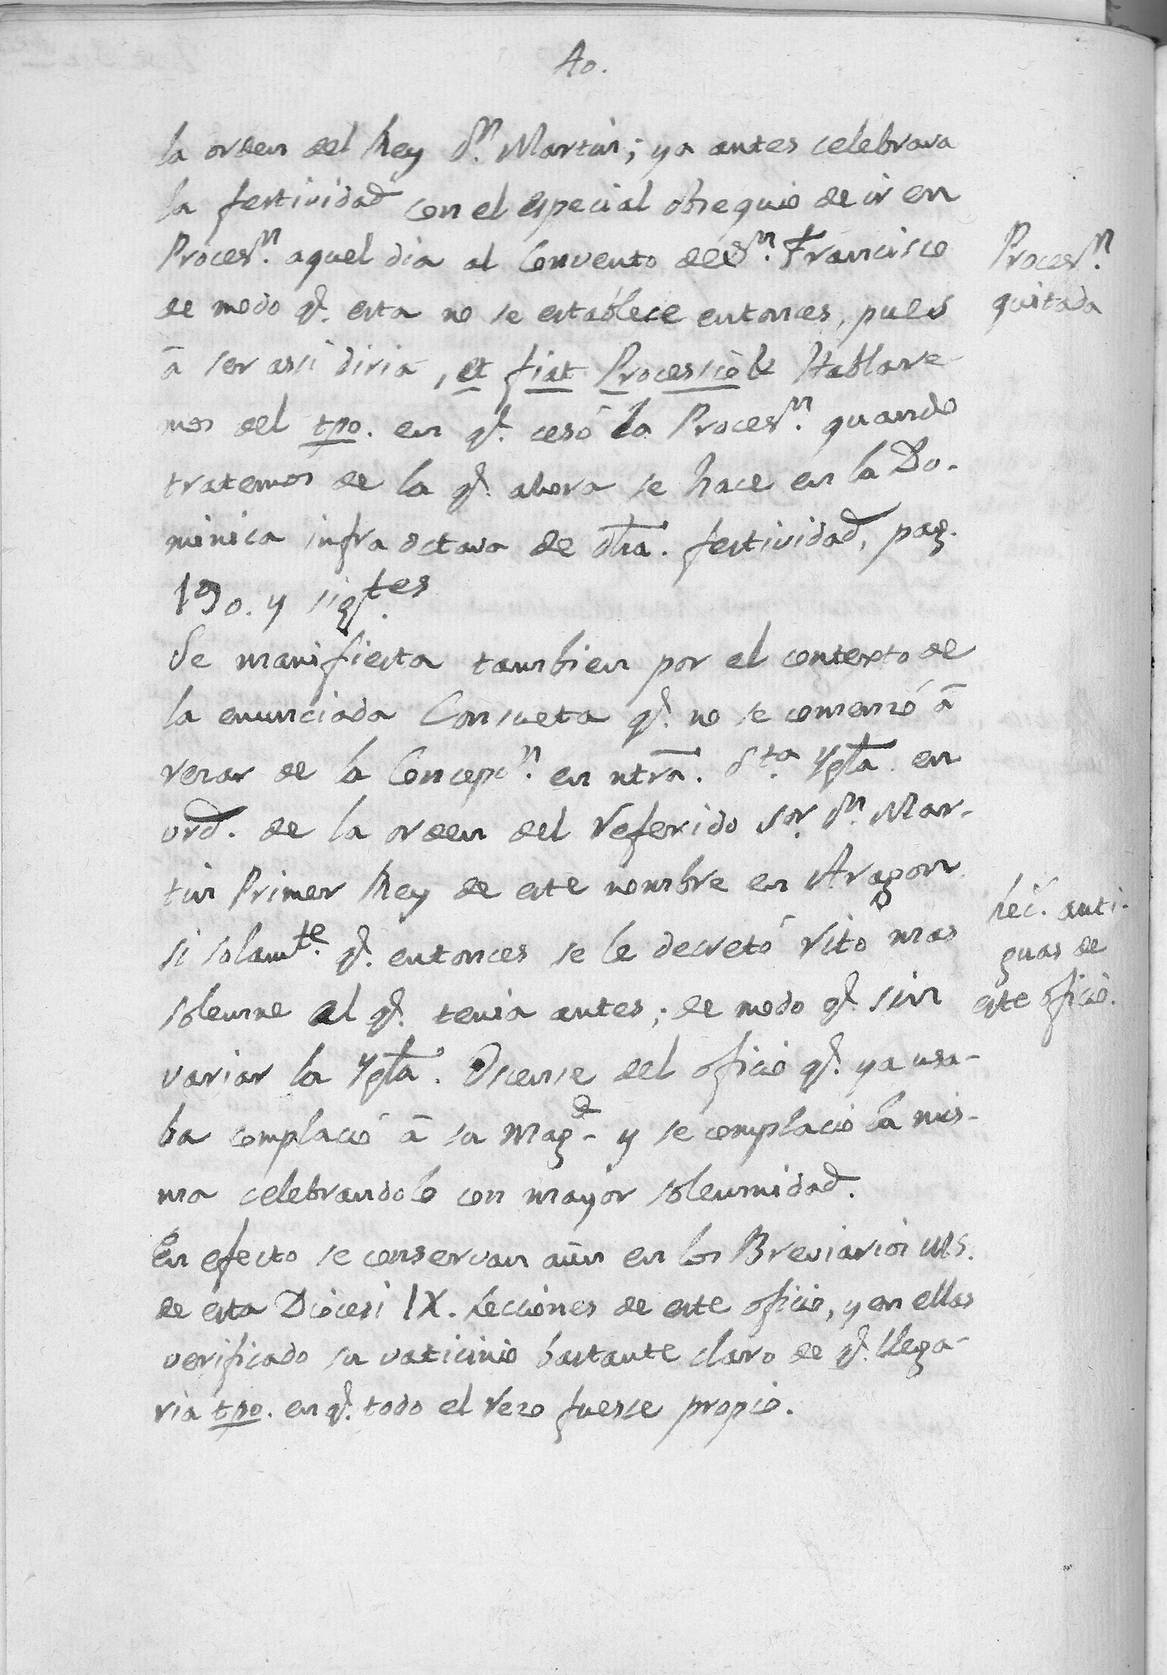 40.
la orden del Rey Dn. Martin; ya antes celebrava
la festividad con el especial obsequio de ir en
Procesn. aquel dia al Convento de Sn. Francisco
Procesn.
quitada
de modo q. esta no se establece entonces, pues
â ser assi diria, et fiat Processio &c Hablare
mos del tpo. en q. cesó la Procesn. quando
tratemos de la q. ahora se hace en la Do-
minica infra octava de dha. festividad, pag.
190. y sigtes.
Se manifiesta tambien por el contexto de
la enunciada Consueta q. no se comenzó â
rezar de la Concepcn. en ntra. Sta. Ygla. en
vrd. de la orden del referido Sor. Dn. Mar-
tin Primer Rey de este nombre en Aragon
si solamte. q. entonces se le decretó rito mas
Lec. anti-
guas de
este oficio.
solemne al q. tenia antes; de modo q. sin
variar la Ygla. Oscense del oficio q. ya usa-
ba complació â su Magd. y se complació la mis-
ma celebrandolo con mayor solemnidad.
En efecto se conservan aún en los Breviarios ms.
de esta Diocesi IX. Lecciones de este oficio, y en ellas
verificado su vaticinio bastante claro de q. llega-
ria tpo. en q. todo el rezo fuesse propio.